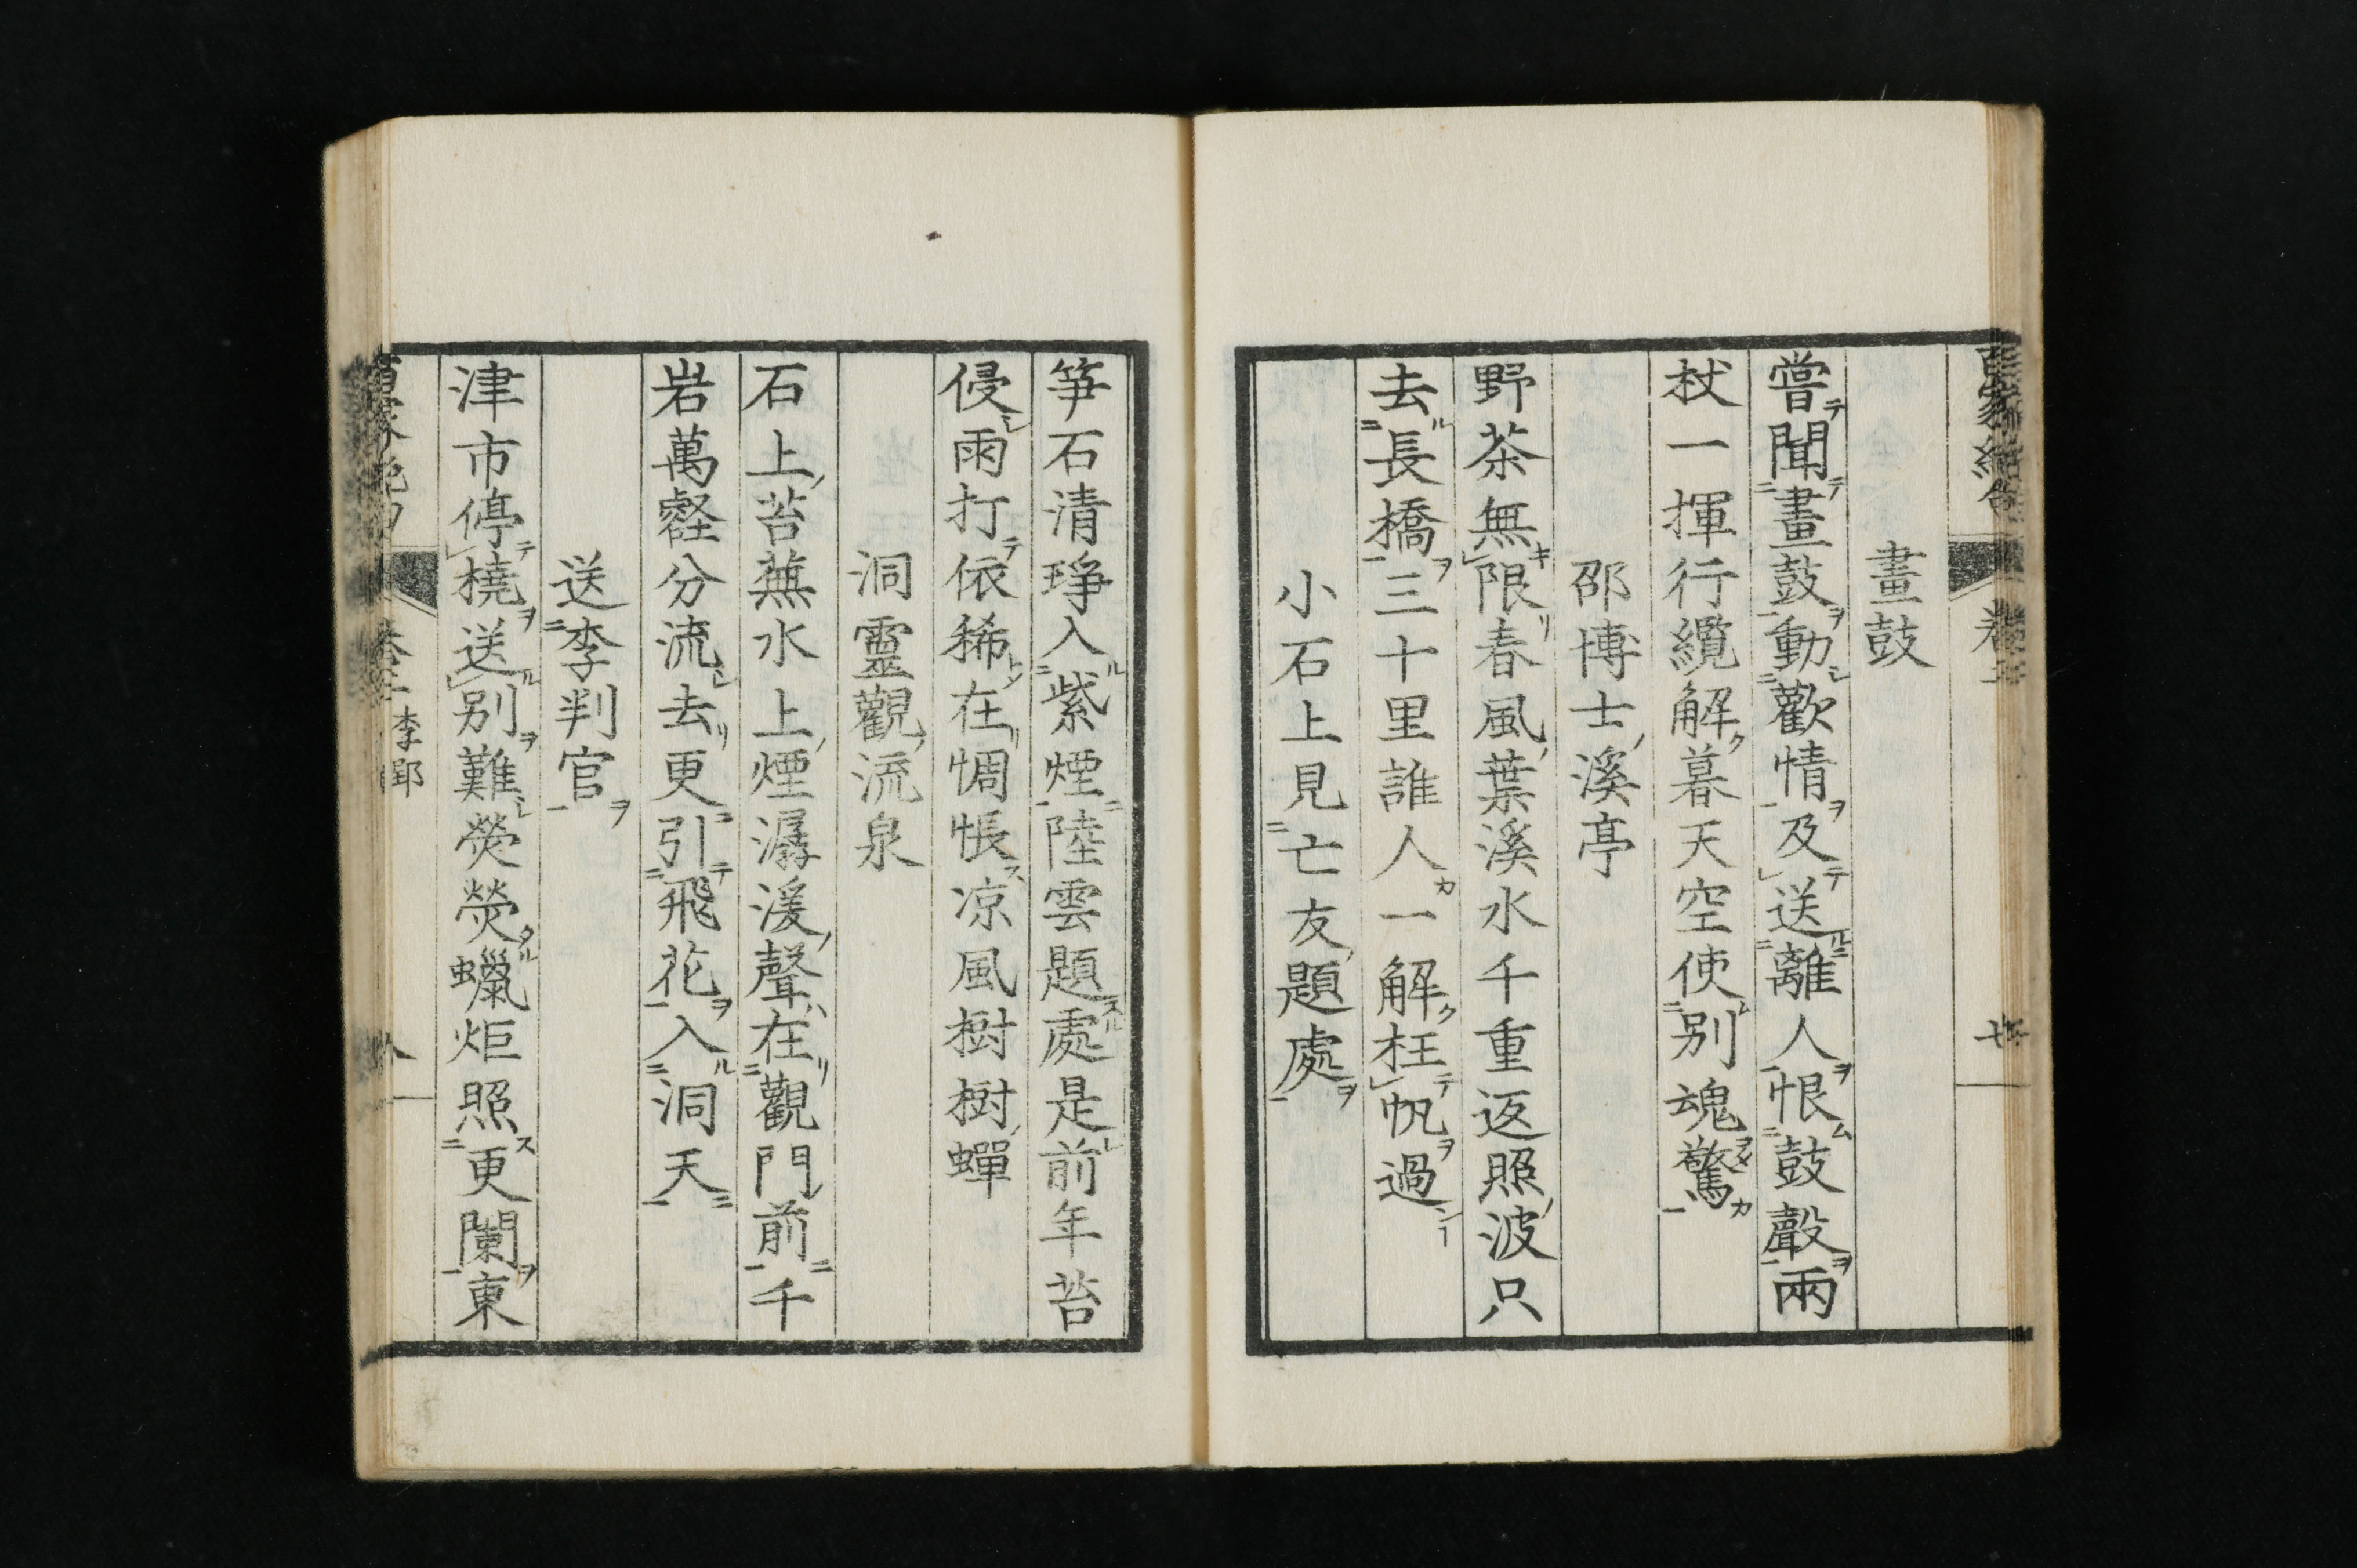 畫鼓
嘗聞畫鼓動歡情及送離人恨鼓聲兩
杖一揮行纜解暮天空使別魂驚
邵博士溪亭
野茶無限春風葉溪水千重返照波只
去長橋三十里誰人一解枉帆過
小石上見亡友題處
笋石清琤入紫煙陸雲題處是前年苔
侵雨打依稀在惆悵凉風樹樹蟬
洞靈觀流泉
石上苔蕪水上煙潺湲聲在觀門前千
岩萬壑分流去更引飛花入洞天
送李判官
津市停橈送別難熒熒蠟炬照更闌東
李郢